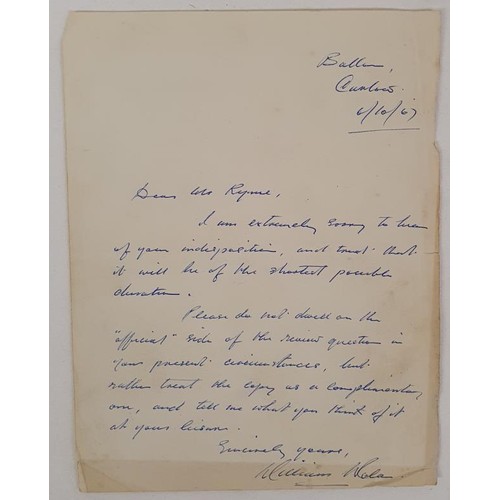 Ballon,
Carlow.
6/10/67
Dear Mr Ryme,
I am extremely sorry to hear
of your indisposition, and trust that
it will be of the shortest possible
duration.
Please do not dwell on the
"official" side of the review question in
your present circumstances, but
rather treat the copy as a complimentary
one, and tell me what you think of it
at your leisure.
Sincerely yours,
William Nolan